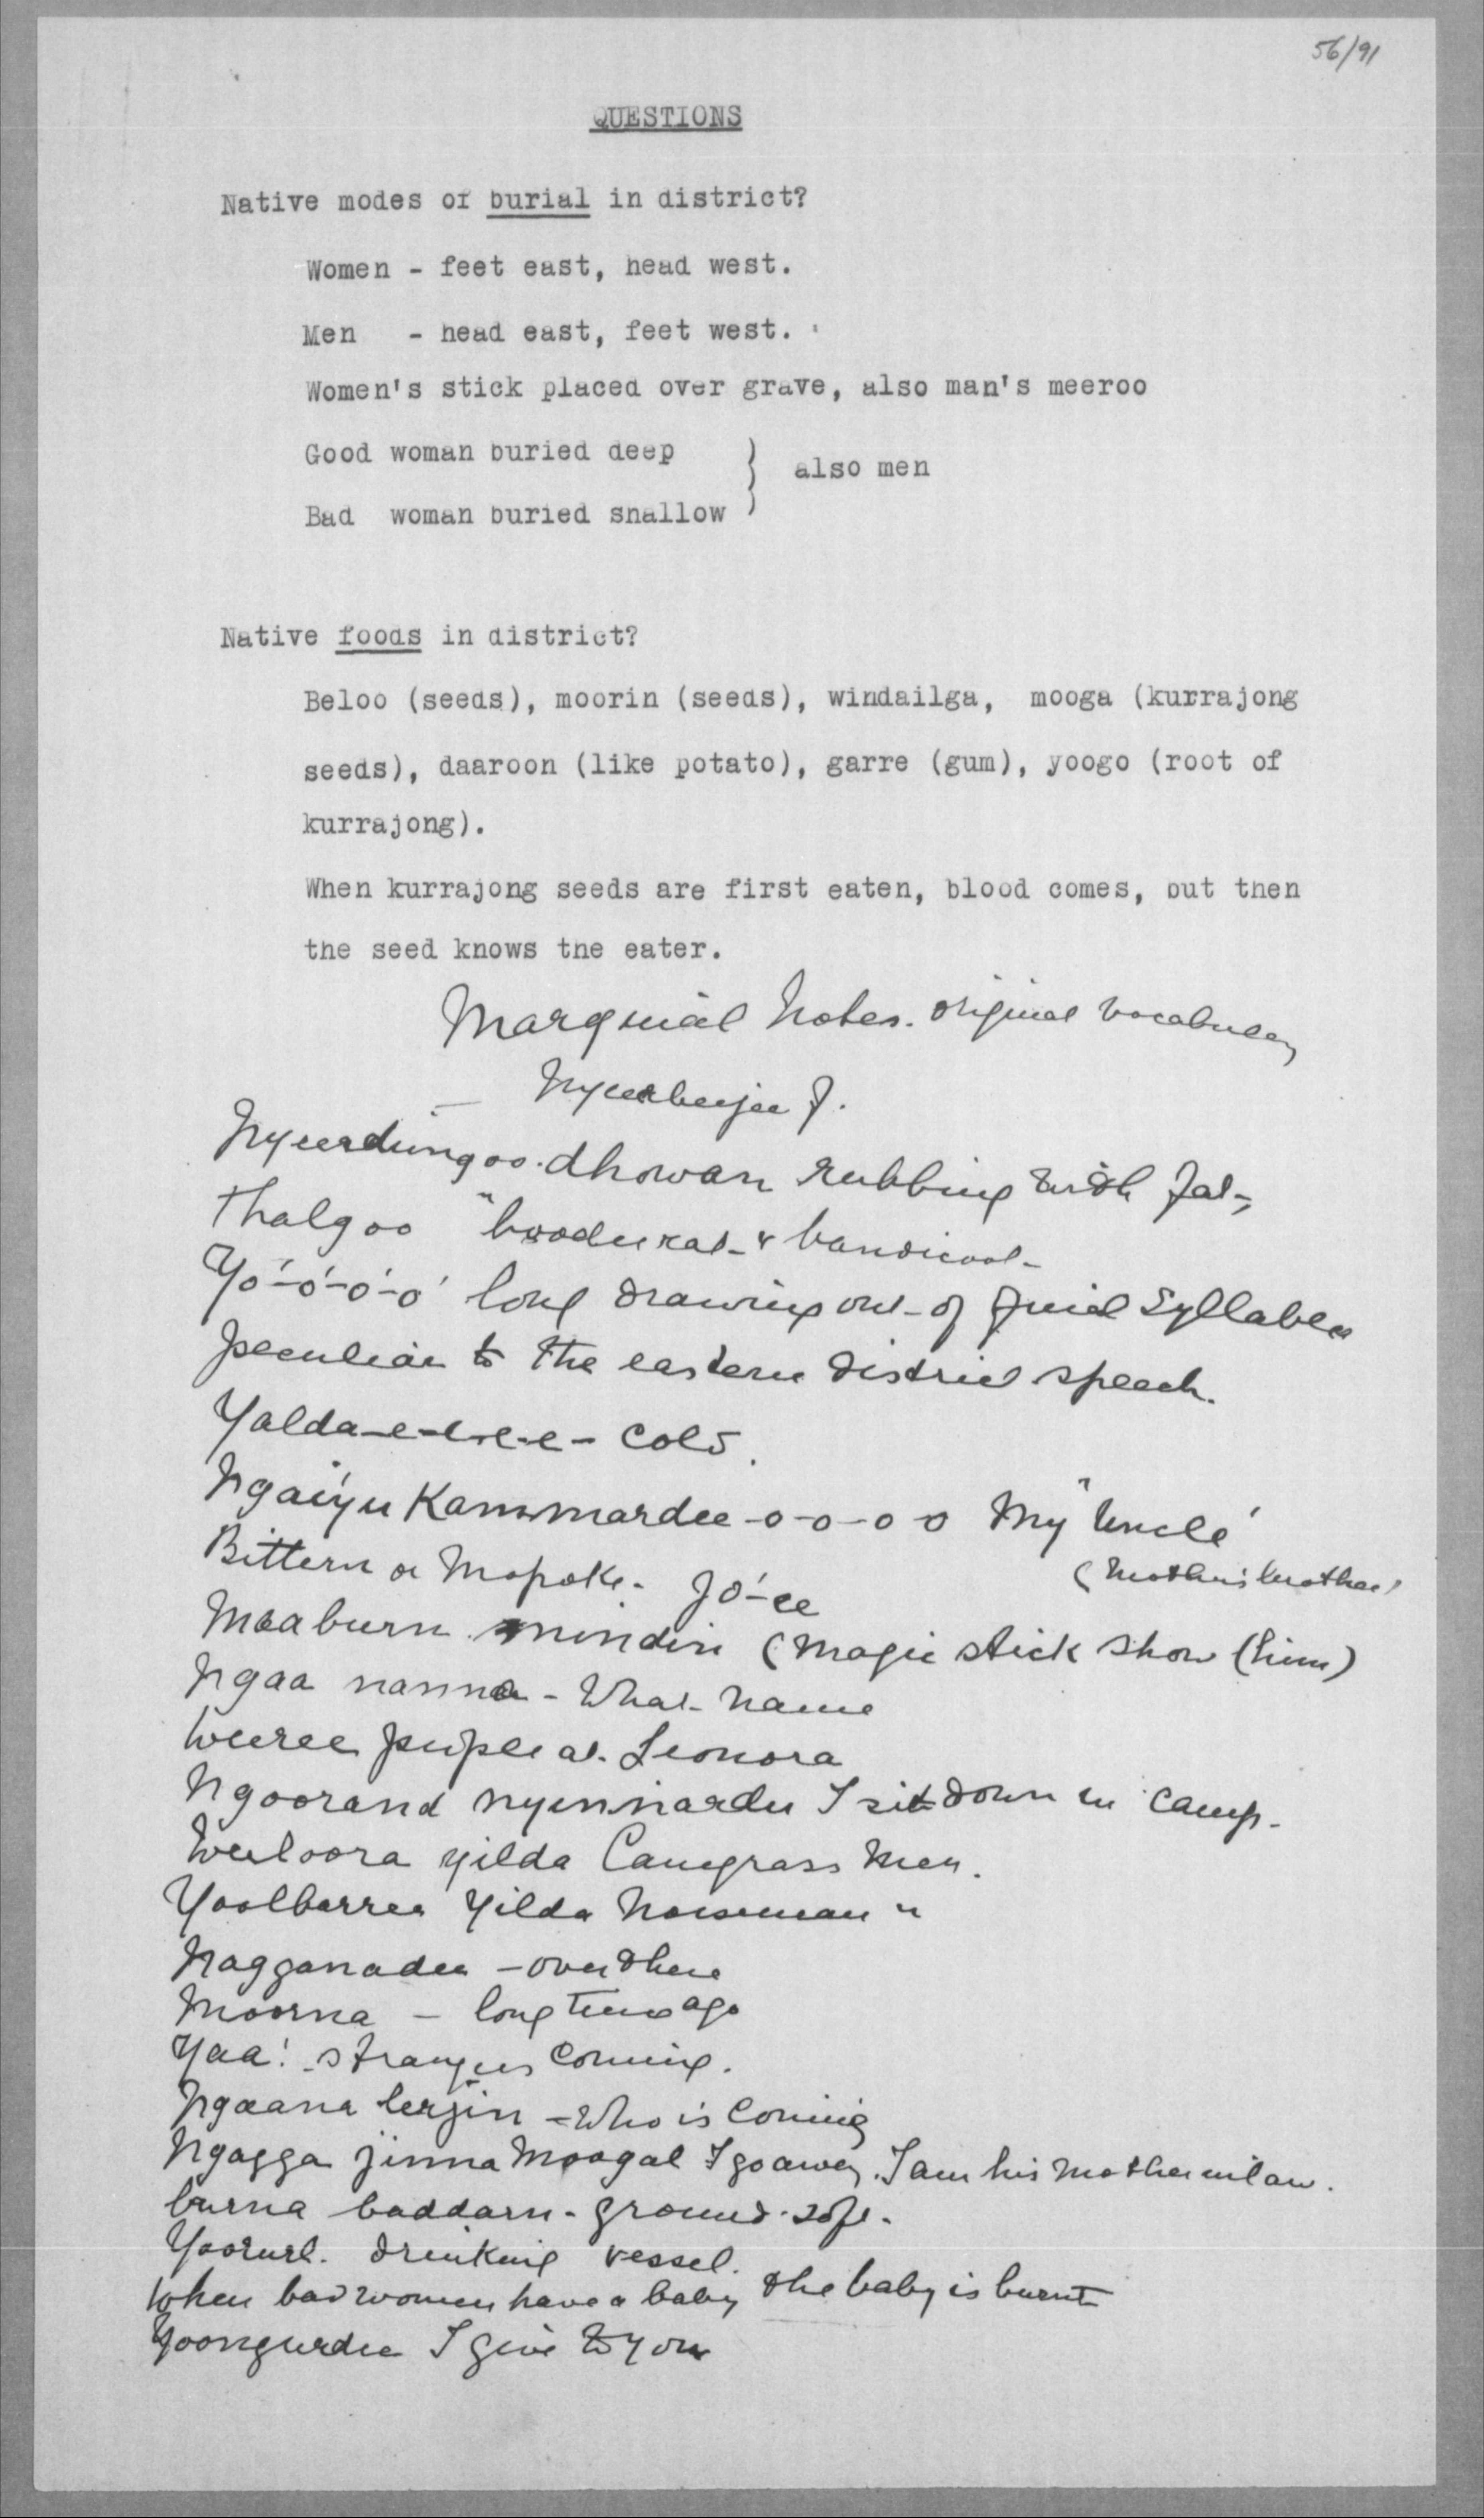 56/91
QUESTIONS
Native modes of burial in district?
Women - feet east, head west.
Men - head east, feet west.
Women's stick placed over grave, also man's meeroo
Good woman buried deep
} also men
Bad woman buried shallow
Native foods in district?
Beloo (seeds), moorin (seeds), windailga, mooga (kurrajong
seeds), daaroon (like potato), garre (gum), yoogo (root of
kurrajong).
When kurrajong seeds are first eaten, blood comes, but then
the seed knows the eater.
Marginal Notes. Original Vocabulary
Nyeerdingoo. dhowan rubbing with fat,
Thalgoo " boodie rat & bandicoot
Yó-ó-ó-ó long drawing out of final syllables
peculiar to the eastern district speech.
Yalda-e-e-e-e - cold.
Ngaiyu Kammardee-o-o-o-o My "Uncle"
(Mother's brother)
Bittern or Mopoke. Jó-ee
Maaburn mindin (Magic stick show (him)
Ngaa nanna - What name
Weeree people at Leonora
Ngoorand nyinnardu I sit down in camp.
Weeloora yilda Canegrass Men.
Yoolbarree Yilda Norseman "
Nagganadee - over there
Moorna - long time ago
Yaa! strangers coming.
Ngaana yerjin - Who is coming
Ngagga jinna Moogal I go away. I am his mother in law.
burna baddarn - ground soft.
Yoorurl. drinking vessel.
When bad women have a baby the baby is burnt
Yoongurdee I give to you